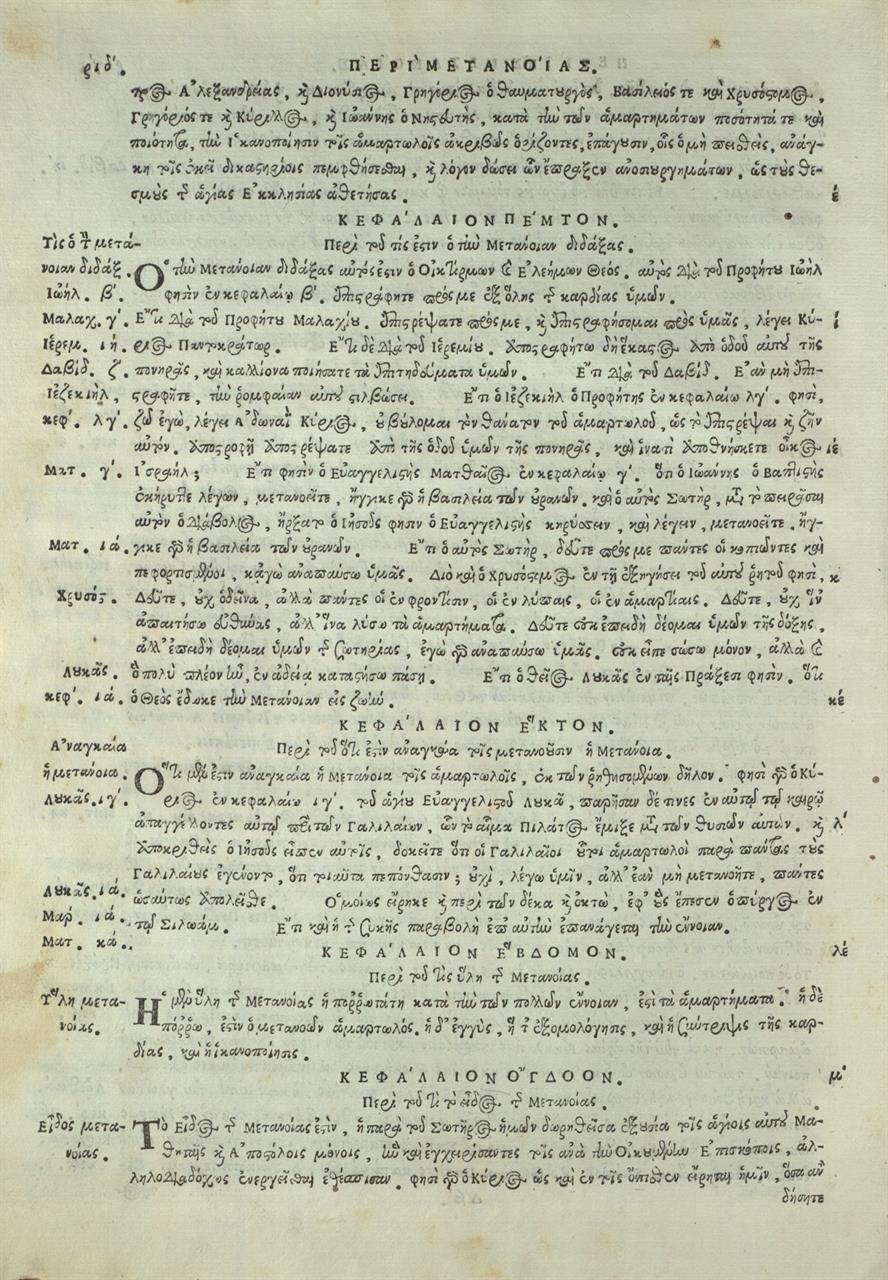 ριδ΄. ΠΕΡΙ ΜΕΤΑΝΟΙΑΣ.
Ἀλεξανδρείας, καὶ Διονύσιος, Γρηγόριος ὁ θαυματουργὸς, Βασίλειός τε καὶ Χρυσόστομος,
Γρηγόριος τε καὶ Κύριλλος, καὶ Ἰωάννης ὁ Νηστευτὴς, κατὰ τὴν τῶν ἁμαρτημάτων ποσότητά τε καὶ
ποιότητα, τὴν Ἱκανοποίησιν τοῖς ἁμαρτωλοῖς ἀκριβῶς ὁρίζοντες, ἐπάγουσιν, οἷς ὁ μὴ πεισθεὶς, ἀνάγ-
κη τοῖς ἐκεῖ δικαστηρίοις πεμφθήσεσθαι, καὶ λόγον δώσει ὧν ἔπραξεν ἀνοσιουργημάτων, ὡς τοὺς θε-
σμοὺς τῆς ἁγίας Ἐκκλησίας ἀθετήσας. έ
ΚΕΦΑΛΑΙΟΝ ΠΕΜΤΟΝ.
Τίς ὁ τὴν μετά- Περὶ τοῦ τίς ἐστιν ὁ τὴν Μετάνοιαν διδάξας.
νοιαν διδάξ. Ὁ τὴν Μετάνοιαν διδάξας αὐτός ἐστιν ὁ Οἰκτίρμων καὶ Ἐλεήμων Θεός. αὐτὸς διὰ τοῦ Προφήτου Ἰωὴλ
Ἰωήλ. β΄. φησὶν ἐν κεφαλαίῳ β΄. ἐπιστράφητε πρός με ἐξ ὅλης τῆς καρδίας ὑμῶν.
Μαλαχ. γ΄. Ἔτι διὰ τοῦ Προφήτου Μαλαχίου. ἐπιστρέψατε πρός με, καὶ ἐπιστραφήσομαι πρὸς ὑμᾶς, λέγει Κύ- ί
Ἱερεμ. ιή. ριος Παντοκράτωρ. Ἔτι δὲ διὰ τοῦ Ἱερεμίου. ἀποστραφήτω δὴ ἕκαστος ἀπὸ ὁδοῦ αὐτοῦ τῆς
Δαβίδ. ζ΄. πονηρᾶς, καὶ καλλίονα ποιήσατε τὰ ἐπιτηδεύματα ὑμῶν. Ἔτι διὰ τοῦ Δαβίδ. Ἐὰν μὴ ἐπι-
Ἰεζεκιὴλ, στραφῆτε, τὴν ῥομφαίαν αὐτοῦ στιλβώσει. Ἔτι ὁ Ἰεζεκιὴλ ὁ Προφήτης ἐν κεφαλαίῳ λγ΄. φησὶ,
κεφ΄. λγ΄. ζῶ ἐγὼ, λέγει Ἀδωναῒ Κύριος, οὐ βούλομαι τὸν θάνατον τοῦ ἁμαρτωλοῦ, ὡς τὸ ἐπιστρέψαι καὶ ζῆν
αὐτόν. ἀποστροφῇ ἀποστρέψατε ἀπὸ τῆς ὁδοῦ ὑμῶν τῆς πονηρᾶς, καὶ ἱνατί ἀποθνήσκετε οἶκος ιέ
Ματ. γ΄. Ἰσραήλ; Ἔτι φησὶν ὁ Εὐαγγελιστὴς Ματθαῖος ἐν κεφαλαίῳ γ΄. ὅτι ὁ Ἰωάννης ὁ Βαπτιστὴς
ἐκήρυττε λέγων, μετανοεῖτε, ἤγγικε γὰρ ἡ βασιλεία τῶν οὐρανῶν. καὶ ὁ αὐτὸς Σωτὴρ, μετὰ τὸ πειρᾶσαι
αὐτὸν ὁ Διάβολος, ἤρξατο ὁ Ἰησοῦς φησιν ὁ Εὐαγγελιστὴς κηρύσσειν, καὶ λέγειν, μετανοεῖτε. ἤγ-
Ματ. ιά. γικε γὰρ ἡ βασιλεία τῶν οὐρανῶν. Ἔτι ὁ αὐτὸς Σωτὴρ, δεῦτε πρός με πάντες οἱ κοπιῶντες καὶ
πεφορτισμένοι, κᾀγὼ ἀναπαύσω ὑμᾶς. Διὸ καὶ ὁ Χρυσόστομος ἐν τῇ ἐξηγήσει τοῦ αὐτοῦ ῥητοῦ φησὶ, κ
Χρυσός. Δεῦτε, οὐχ ὁ δεῖνα, ἀλλὰ πάντες οἱ ἐν φροντίσιν, οἱ ἐν λύπαις, οἱ ἐν ἁμαρτίαις. Δεῦτε, οὐχ ἵν'
ἀπαιτήσω εὐθύνας, ἀλλ' ἵνα λύσω τὰ ἁμαρτήματα. Δεῦτε οὐκ ἐπειδὴ δέομαι ὑμῶν τῆς δόξης,
ἀλλ' ἐπειδὴ δέομαι ὑμῶν τῆς Σωτηρίας, ἐγὼ γὰρ ἀναπαύσω ὑμᾶς. οὐκ εἶπε σώσω μόνον, ἀλλὰ καὶ
Λουκᾶς. ὃ πολὺ πλέον ἦν, ἐν ἀδείᾳ καταστήσω πάσῃ. Ἔτι ὁ θεῖος Λουκᾶς ἐν ταῖς Πράξεσι φησίν. ὅτι
κεφ. ιά. ὁ Θεὸς ἔδωκε τὴν Μετάνοιαν εἰς ζωήν. κέ
ΚΕΦΑΛΑΙΟΝ ἝΚΤΟΝ.
Ἀναγκαία Περὶ τοῦ ὅτι ἐστὶν ἀναγκαία τοῖς μετανοοῦσιν ἡ Μετάνοια.
ἡ μετάνοια. Ὅτι μὲν ἐστὶν ἀναγκαία ἡ Μετάνοια τοῖς ἁμαρτωλοῖς, ἐκ τῶν ῥηθησομένων δῆλον. φησὶ γὰρ ὁ Κύ-
Λουκᾶς. ιγ΄. ριος ἐν κεφαλαίῳ ιγ΄. τοῦ ἁγίου Εὐαγγελιστοῦ Λουκᾶ, παρῆσαν δέ τινες ἐν αὐτῷ τῷ καιρῷ
ἀπαγγέλλοντες αὐτῷ περὶ τῶν Γαλιλαίων, ὧν τὸ αἷμα Πιλάτος ἔμιξε μετὰ τῶν θυσιῶν αὐτῶν. καὶ λ΄
ἀποκριθεὶς ὁ Ἰησοῦς εἶπεν αὐτοῖς, δοκεῖτε ὅτι οἱ Γαλιλαῖοι οὗτοι ἁμαρτωλοὶ παρὰ πάντας τοὺς
Γαλιλαίους ἐγένοντο, ὅτι τοιαῦτα πεπόνθασιν; οὐχὶ, λέγω ὑμῖν, ἀλλ' ἐὰν μὴ μετανοῆτε, πάντες
Λουκᾶς. ιά. ὡσαύτως ἀπολεῖσθε. Ὁμοίως εἴρηκε καὶ περὶ τῶν δέκα καὶ ὀκτὼ, ἐφ' οὓς ἔπεσεν ὁ πύργος ἐν
Μαρ. ιά. τῷ Σιλωάμ. Ἔτι καὶ ἡ τῆς Συκῆς παραβολὴ ἐπ' αὐτὴν ἐπανάγεται τὴν ἔννοιαν.
Ματ. κά.
ΚΕΦΑΛΑΙΟΝ ἝΒΔΟΜΟΝ. λέ
Περὶ τοῦ τίς ὕλη τῆς Μετανοίας.
Ὕλη μετα- Ἡ μὲν ὕλη τῆς Μετανοίας ἡ πορρωτάτη κατὰ τὴν τῶν πολλῶν ἔννοιαν, ἐστὶ τὰ ἁμαρτήματα. ἡ δὲ
νοίας. πόρρω, ἐστὶν ὁ μετανοῶν ἁμαρτωλός. ἡ δ' ἐγγὺς, ἡ τε ἐξομολόγησις, καὶ ἡ Σύντριψις τῆς καρ-
δίας, καὶ ἡ ἱκανοποίησις.
ΚΕΦΑΛΑΙΟΝ ὌΓΔΟΟΝ. μ΄
Περὶ τοῦ τί τὸ εἶδος τῆς Μετανοίας.
Εἶδος μετα- Τὸ Εἶδος τῆς Μετανοίας ἐστὶν, ἡ παρὰ τοῦ Σωτῆρος ἡμῶν δωρηθεῖσα ἐξουσία τοῖς ἁγίοις αὐτοῦ Μα-
νοίας. θηταῖς καὶ Ἀποστόλοις μόνοις, ἣν καὶ ἐγχειρίσαντες τοῖς ἀνὰ τὴν Οἰκουμένην Ἐπισκόποις, ἀλ-
ληλοδιαδόχως ἐνεργεῖσθαι ἐθέσπισαν. φησὶ γὰρ ὁ Κύριος ὡς καὶ ἐν τοῖς ὄπισθεν εἴρηται ἡμῖν, ὅσα ἂν
δήσητε